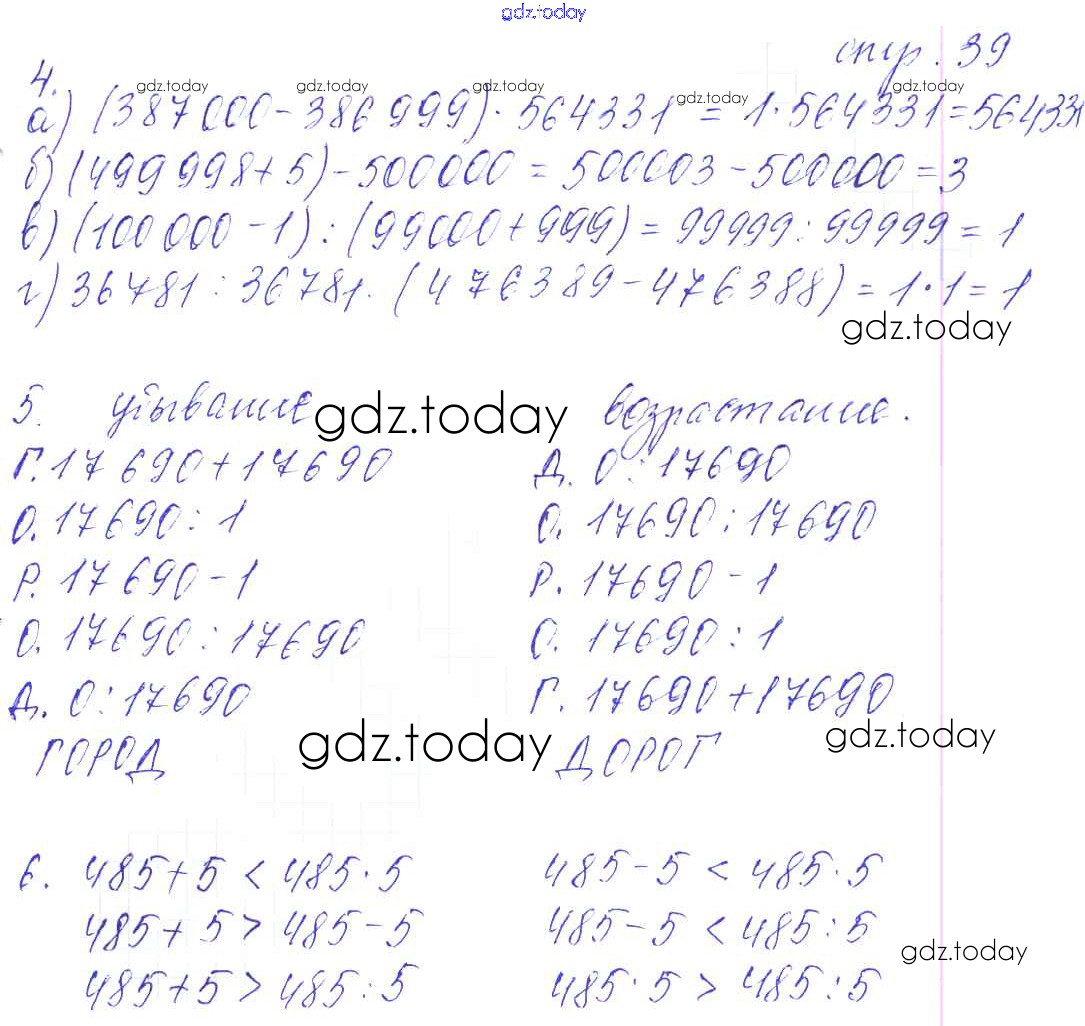 gdz.today
стр. 39
4.
gdz.today gdz.today gdz.today gdz.today
а) (387000 - 386 999) · 564331 = 1 · 564 331 = 564331
б) (499 998 + 5) - 500000 = 500003 - 500000 = 3
в) (100 000 - 1) : (99000 + 999) = 99999 : 99999 = 1
г) 36781 : 36781 · (476389 - 476388) = 1 · 1 = 1
gdz.today
5. убывание gdz.today возрастание.
Г. 17 690 + 17690 Д. 0 : 17690
О. 17690 : 1 О. 17690 : 17690
Р. 17 690 - 1 Р. 17690 - 1
О. 17690 : 17690 О. 17690 : 1
Д. 0 : 17690 Г. 17690 + 17690
ГОРОД gdz.today ДОРОГ gdz.today
6. 485 + 5 < 485 · 5 485 - 5 < 485 · 5
485 + 5 > 485 - 5 485 - 5 < 485 : 5
gdz.today
485 + 5 > 485 : 5 485 · 5 > 485 : 5